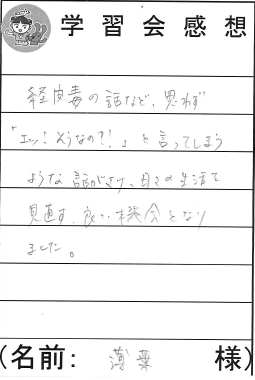 学習会感想
経皮毒の話など、思わず
「エッ！そうなの？！」と言ってしまう
ような話がきけ、日々の生活で
見直す、良い機会となり
ました。
(名前： 薄葉 様)